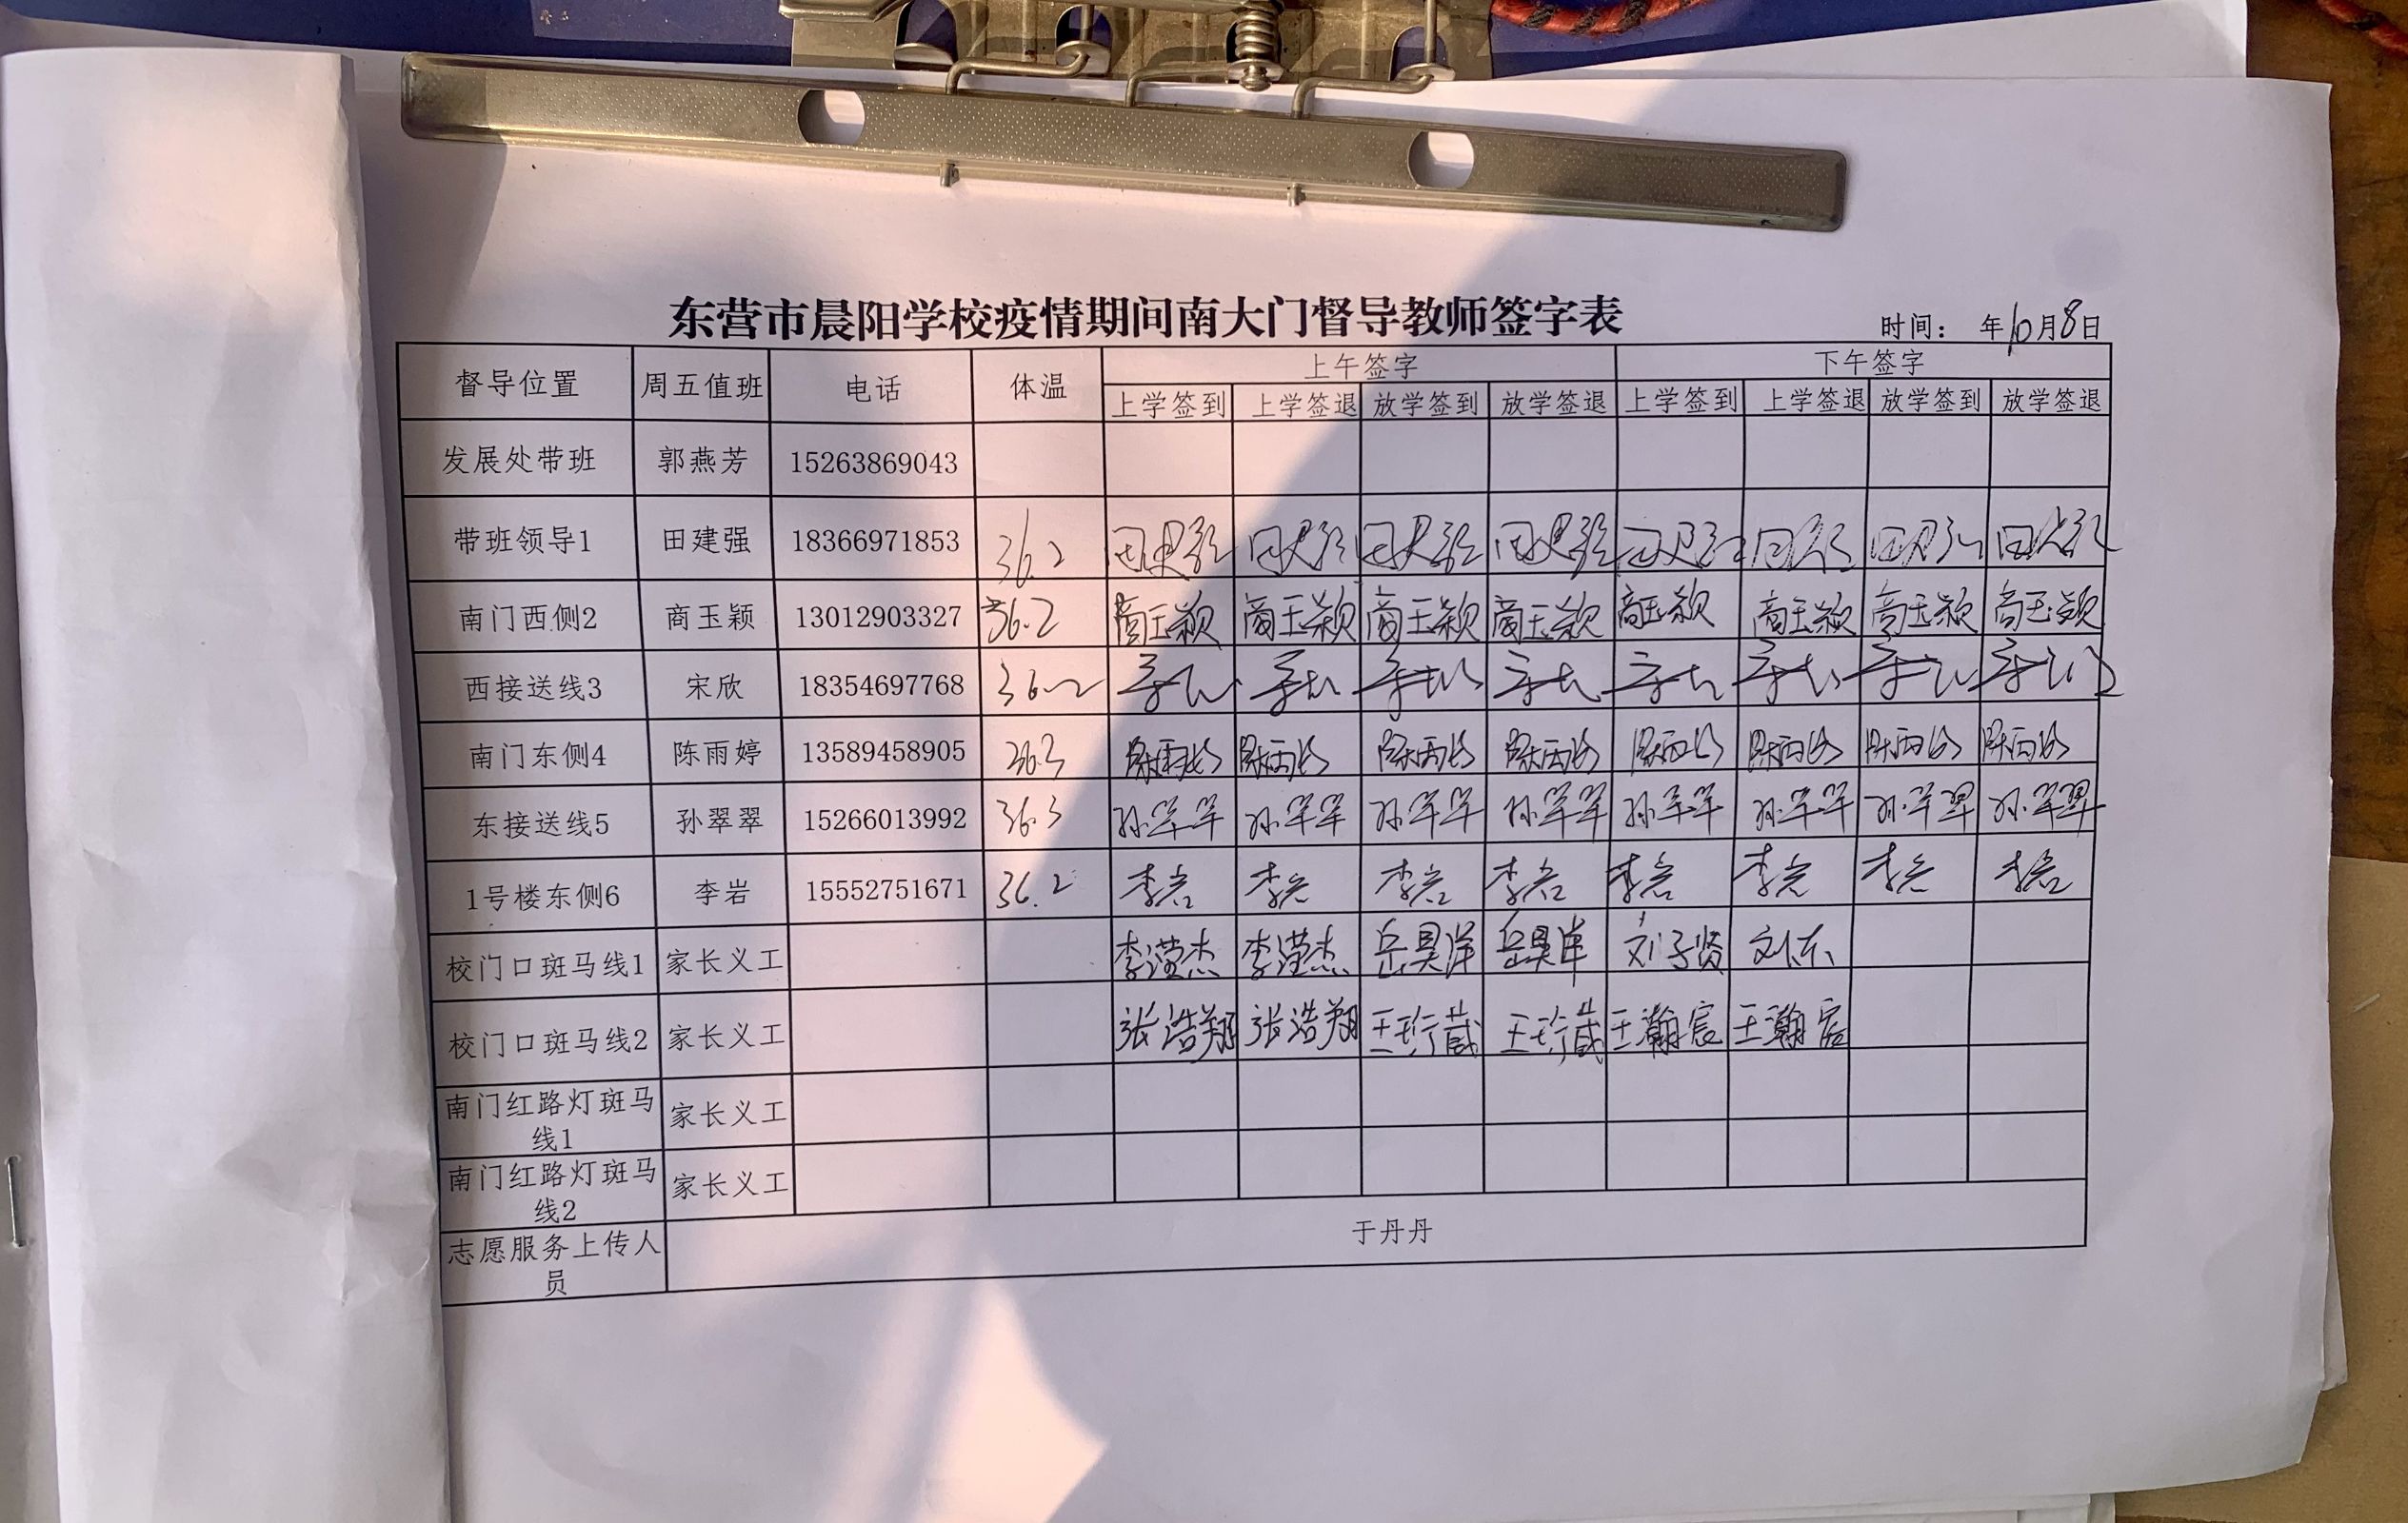 东营市晨阳学校疫情期间南大门督导教师签字表
时间： 年10月8日
督导位置 周五值班 电话 体温 上午签字 下午签字
上学签到 上学签退 放学签到 放学签退 上学签到 上学签退 放学签到 放学签退
发展处带班 郭燕芳 15263869043
带班领导1 田建强 18366971853 36.2 田建强 田建强 田建强 田建强 田建强 田建强 田建强 田建强
南门西侧2 商玉颖 13012903327 36.2 商玉颖 商玉颖 商玉颖 商玉颖 商玉颖 商玉颖 商玉颖 商玉颖
西接送线3 宋欣 18354697768 36.2
南门东侧4 陈雨婷 13589458905 36.3 陈雨婷 陈雨婷 陈雨婷 陈雨婷 陈雨婷 陈雨婷 陈雨婷 陈雨婷
东接送线5 孙翠翠 15266013992 36.3 孙翠翠 孙翠翠 孙翠翠 孙翠翠 孙翠翠 孙翠翠 孙翠翠 孙翠翠
1号楼东侧6 李岩 15552751671 36.2 李岩 李岩 李岩 李岩 李岩 李岩 李岩 李岩
校门口斑马线1 家长义工 李滢杰 李滢杰 岳昊洋 岳昊洋 刘子贤
校门口斑马线2 家长义工 张浩翔 张浩翔 王珍葳 王珍葳 王瀚宸 王瀚宸
南门红路灯斑马
线1
家长义工
南门红路灯斑马
线2
家长义工
志愿服务上传人
员
于丹丹